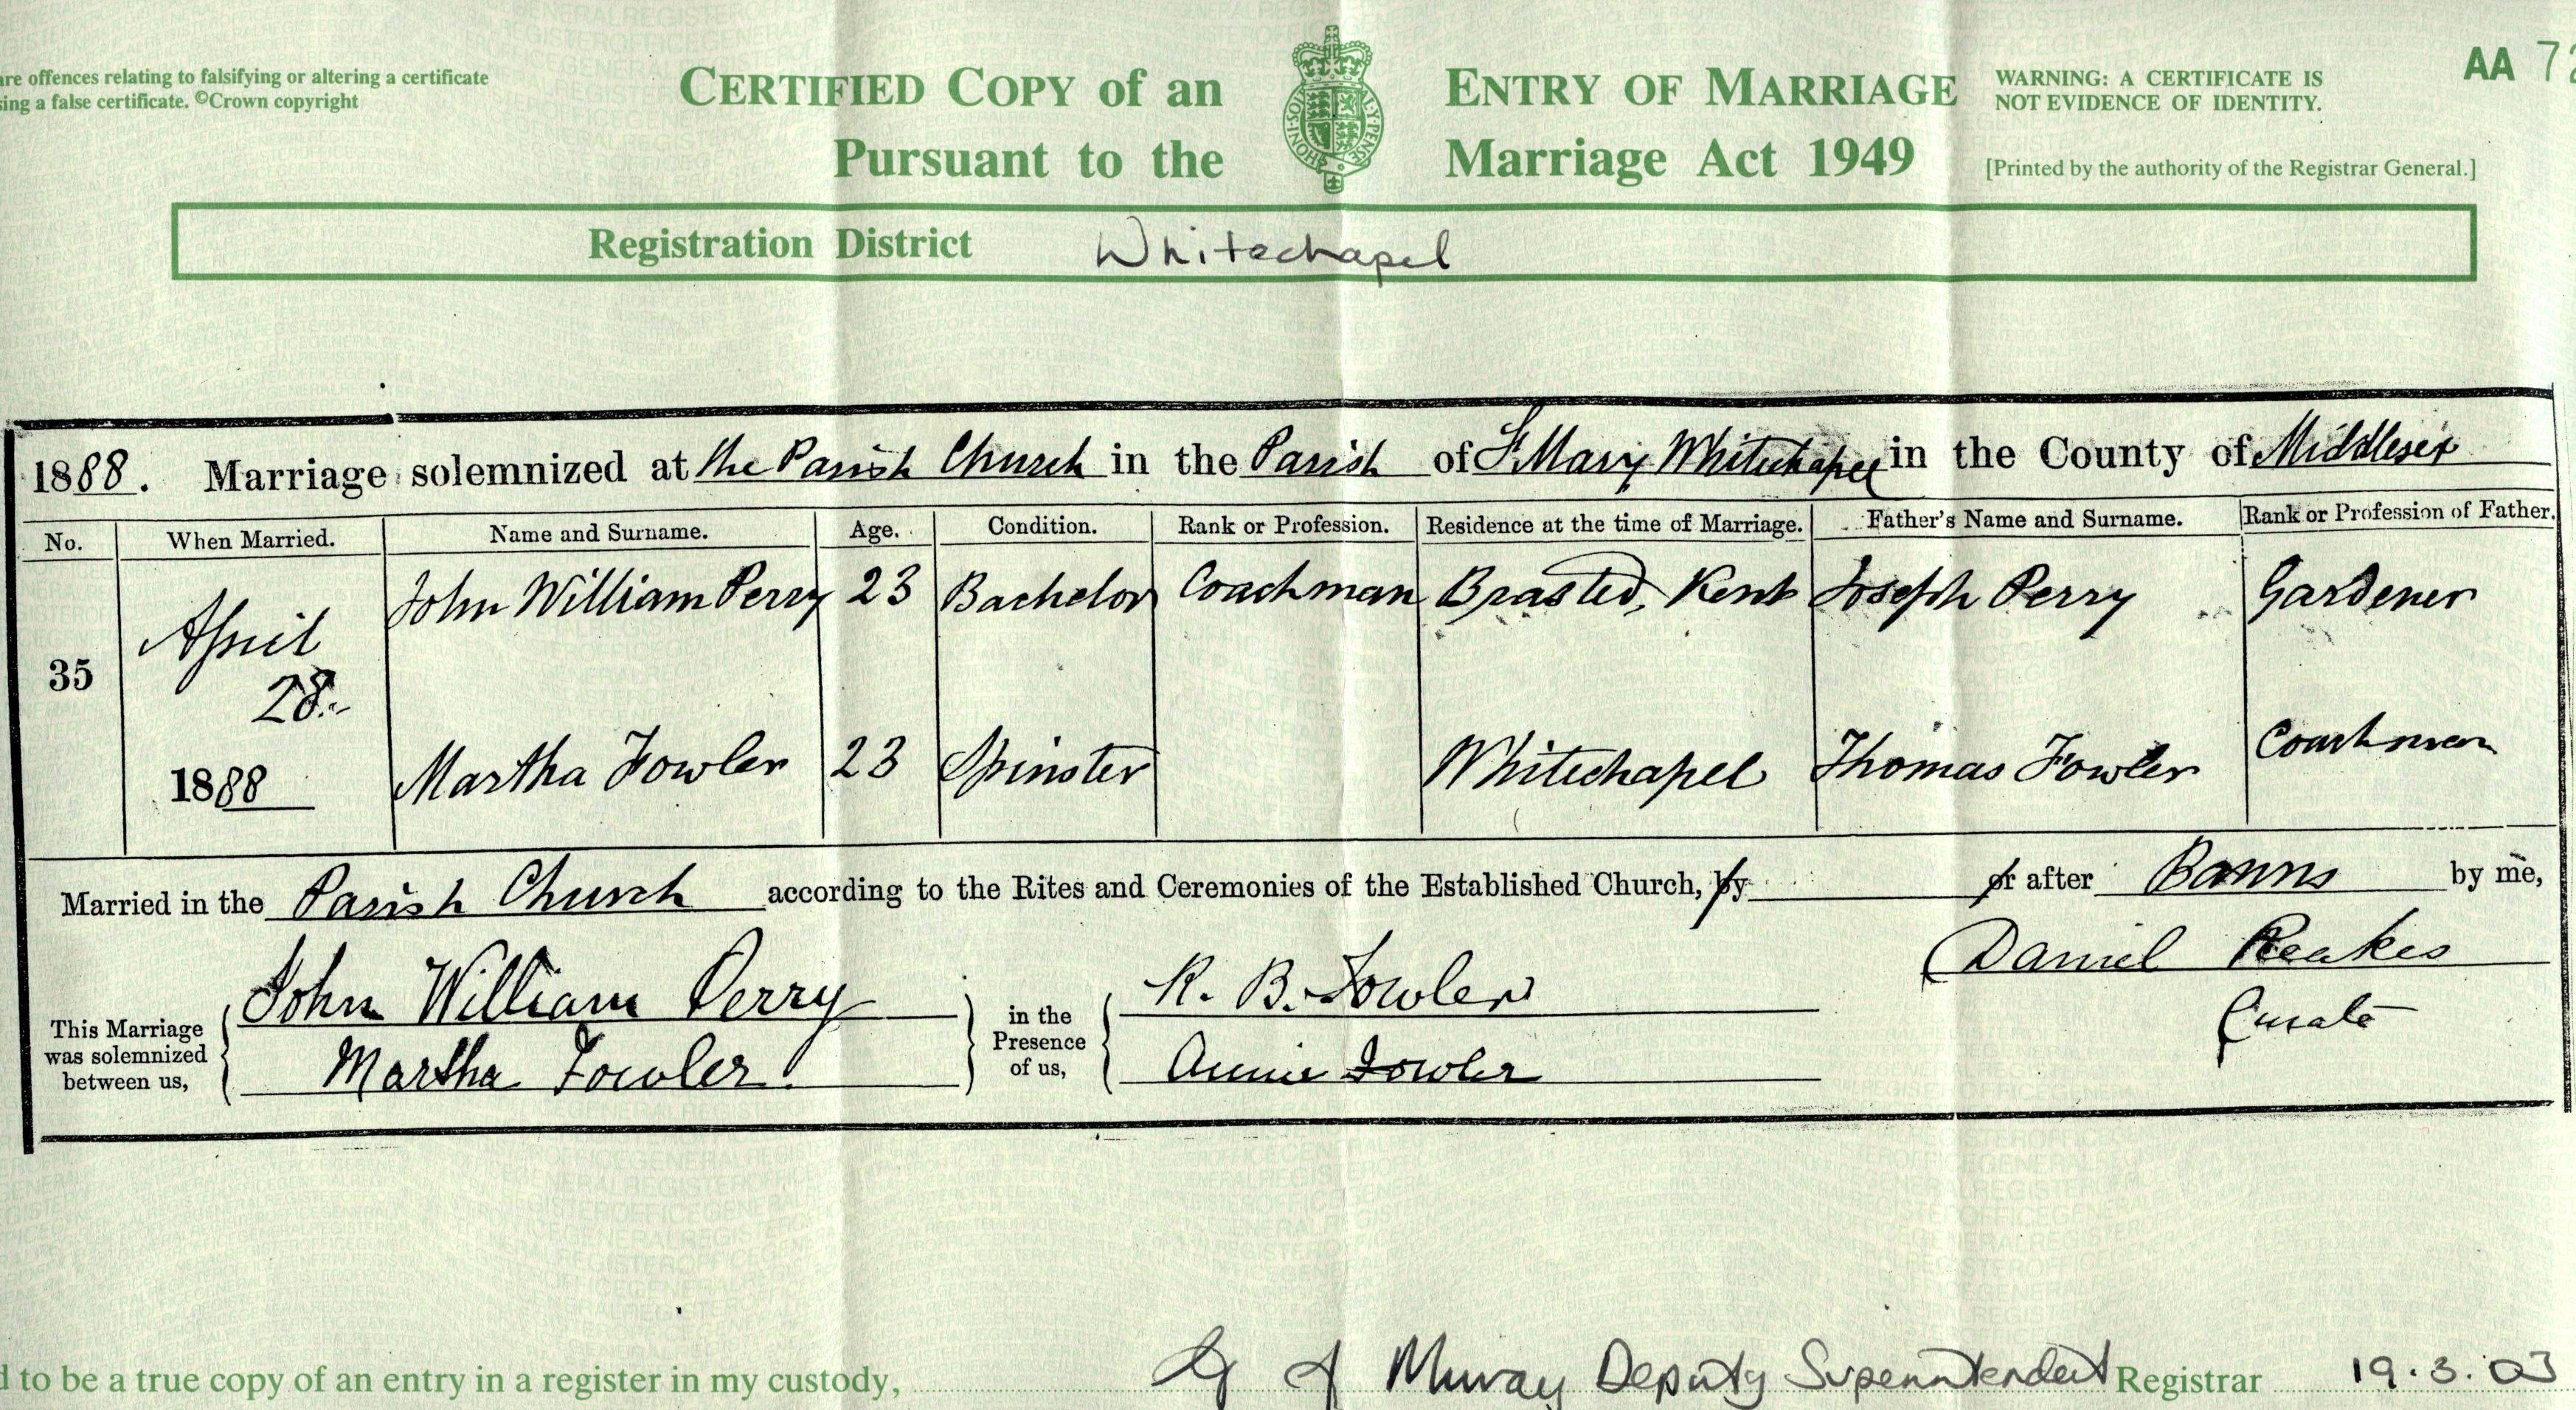 are offences relating to falsifying or altering a certificate
sing a false certificate. ©Crown copyright
CERTIFIED COPY of an ENTRY OF MARRIAGE
Pursuant to the Marriage Act 1949
HONI·SOI Y·PENSE
WARNING: A CERTIFICATE IS
NOT EVIDENCE OF IDENTITY.
AA 72
[Printed by the authority of the Registrar General.]
Registration District Whitechapel
1888. Marriage solemnized at the Parish Church in the Parish of St Mary Whitechapel in the County of Middlesex
No. When Married. Name and Surname. Age. Condition. Rank or Profession. Residence at the time of Marriage. Father's Name and Surname. Rank or Profession of Father.
35 April 28. 1888
John William Perry 23 Bachelor Coachman Brasted, Kent Joseph Perry Gardener
Martha Fowler 23 Spinster Whitechapel Thomas Fowler Coachman
Married in the Parish Church according to the Rites and Ceremonies of the Established Church, by or after Banns by me,
Daniel Reakes
Curate
This Marriage was solemnized between us,
John William Perry
Martha Fowler
in the Presence of us,
R. B. Fowler
Annie Fowler
d to be a true copy of an entry in a register in my custody, Murray Deputy Superintendent Registrar 19.3.03